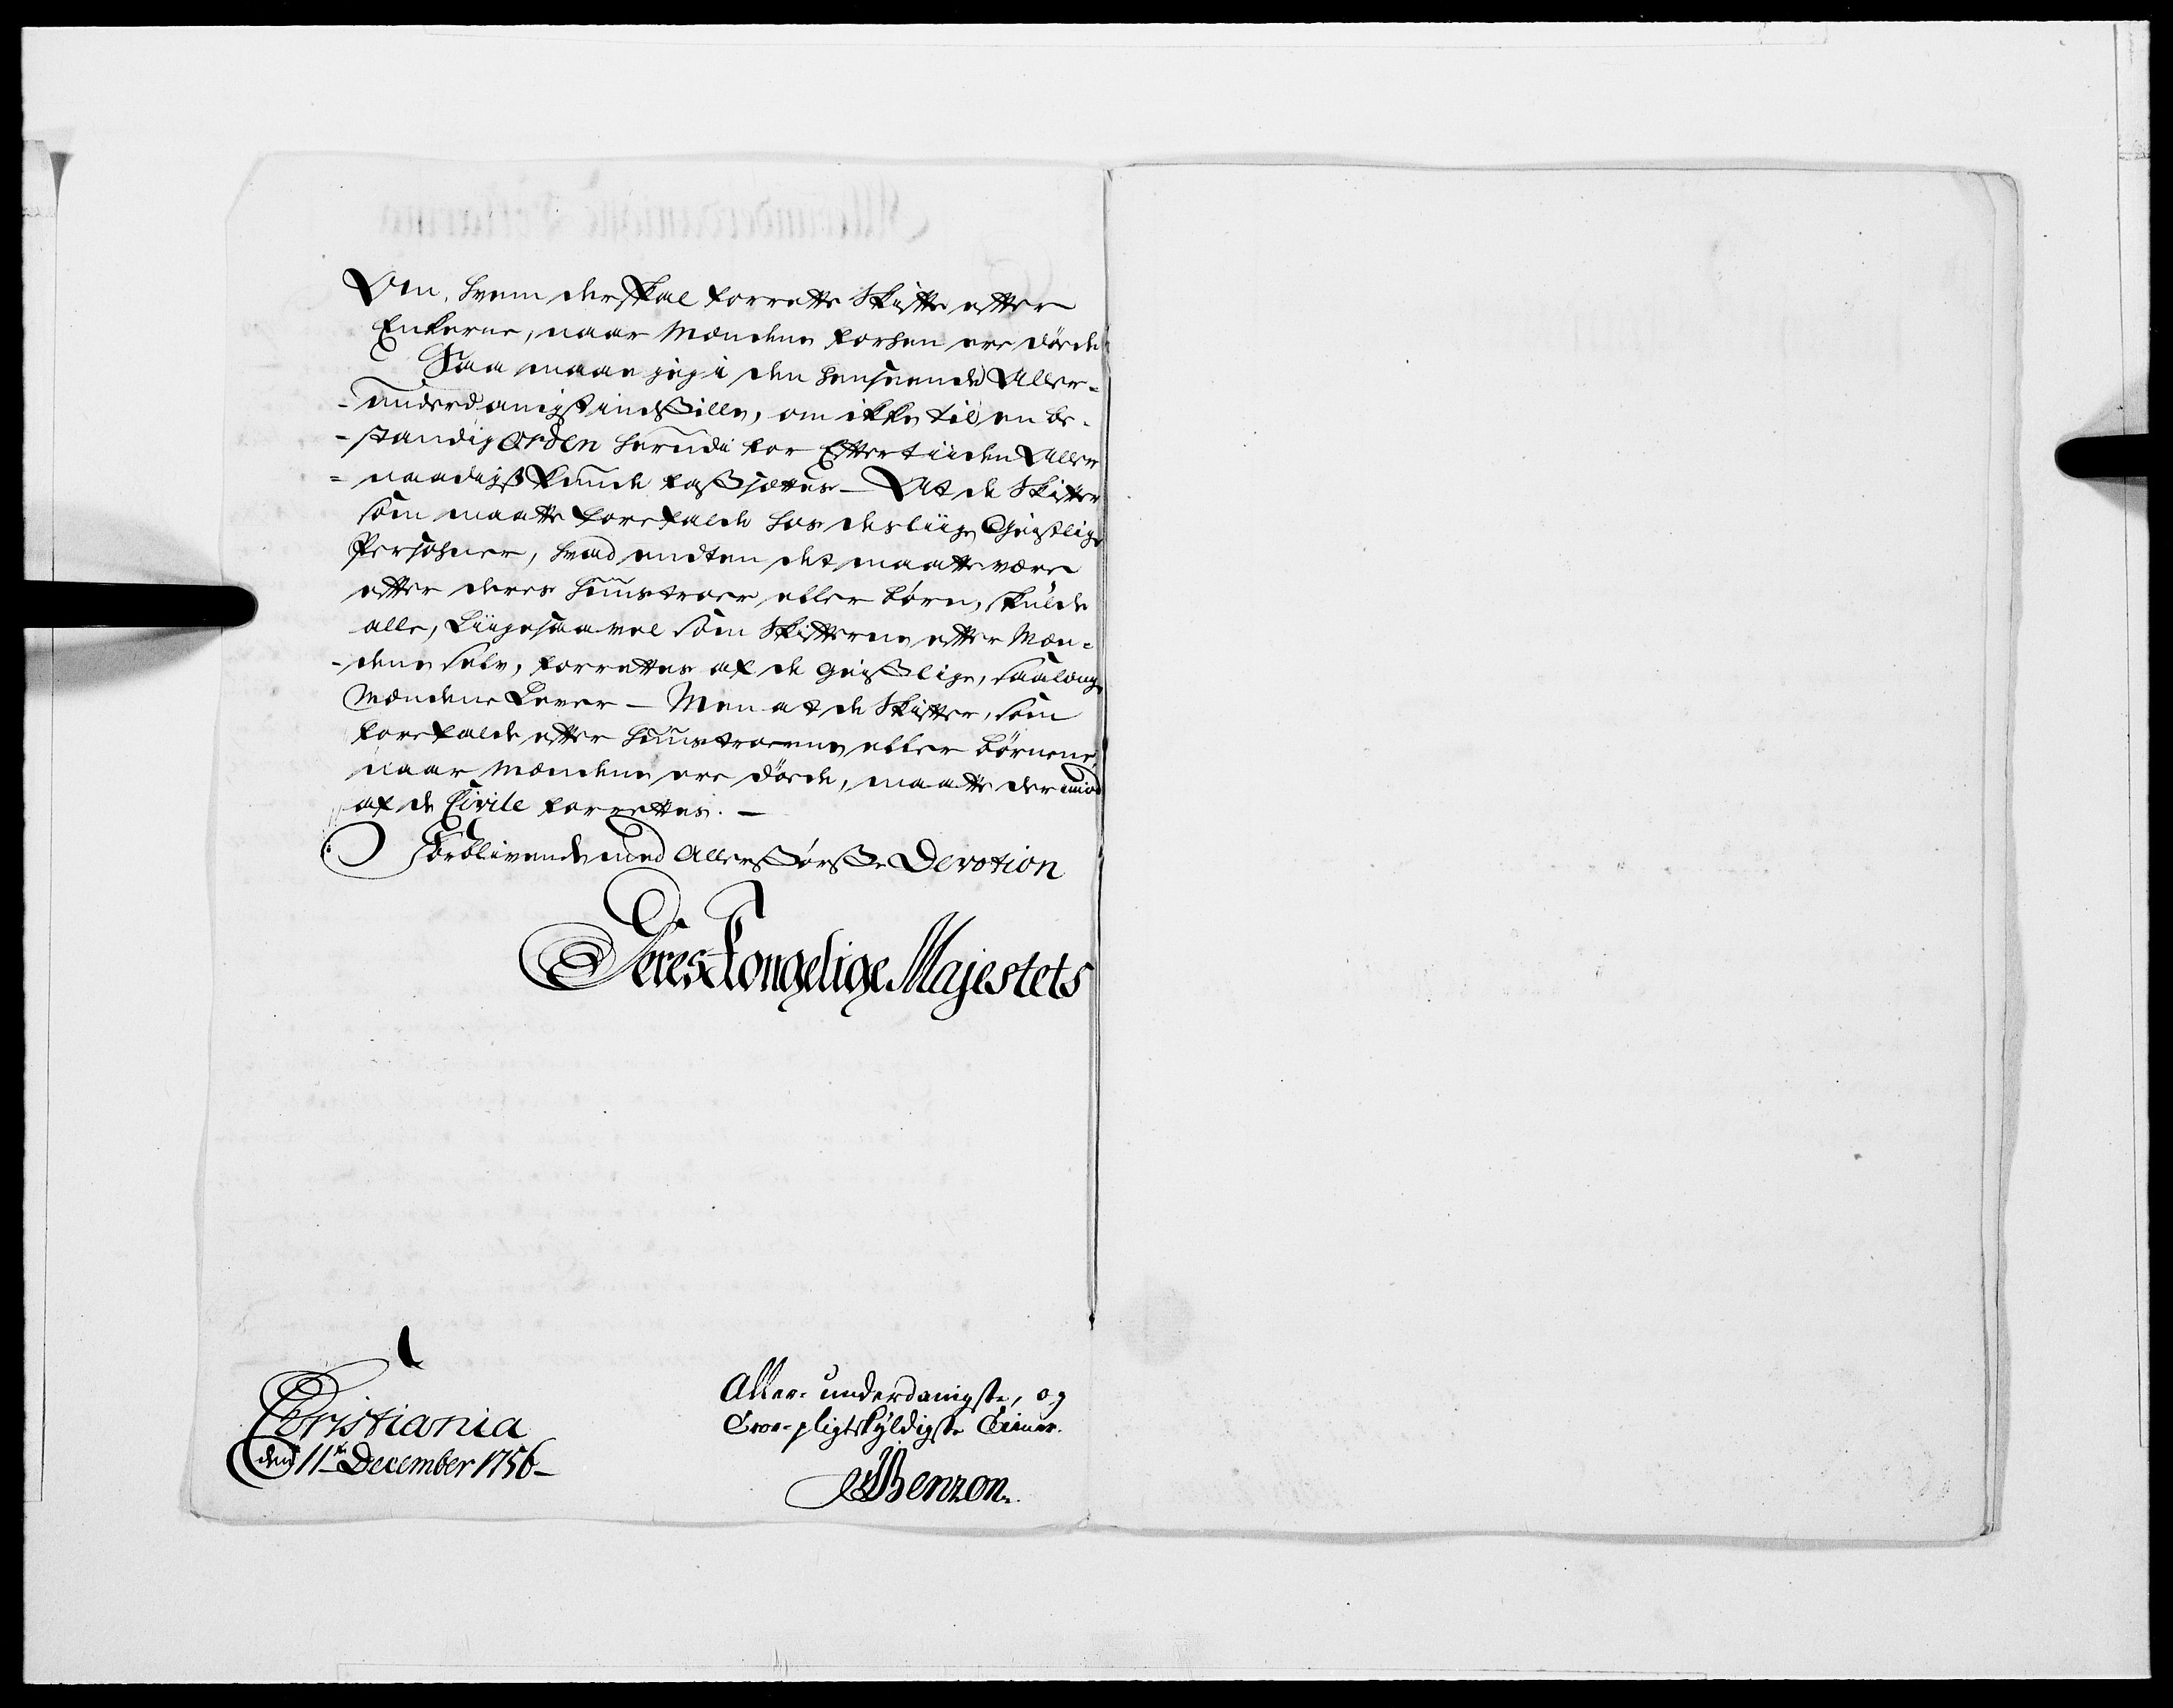 Om, hvem der skal forrette Skifte efter
Enkerne, naar Mændene forhen ere døede
Saa maae jeg i den henseende Aller-
-underdanigst indstille, om ikke til en be-
-standig Orden herudi for Eftertiiden Aller
-naadigst kunde fastsættes - At de Skifter
som maatte forefalde hos desliige Geistlige
Persohner, hvad endten det maatte være
efter deres Huustroer eller Børn, skulde
alle, Liigesaavel som Skifterne efter Mæn-
-dene selv, forrettes af de Geistlige, saalænge
Mændene Lever - Men at de Skifter, som
forefalde efter Huustroerne eller Børnene,
naar Mændene ere døede, maatte derimod
af de Civile forrettes. -
Forblivende med Allerstørste Devotion
Deres Kongelige Majestets
Christiania
den 11te December 1756-
Aller-underdanigste, og
Troe-pligtskyldigste Tiener.
Benzon.